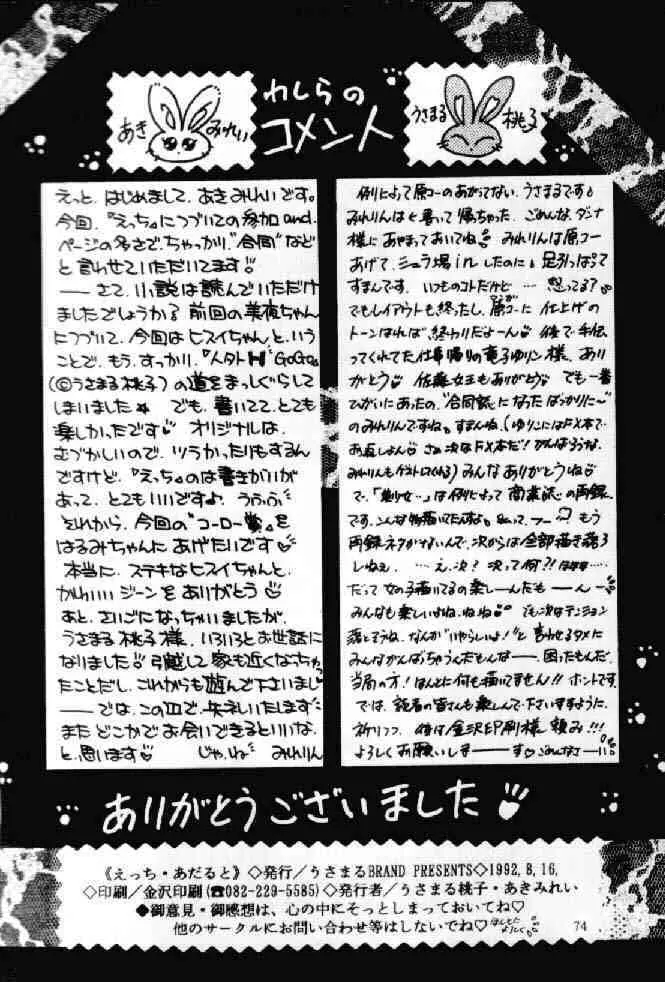 わしらの
コメント
あき みれい
うさまる 桃子
えっと、はじめまして、あきみれいです。
今回、『えっち』につづいての参加and.
ページの多さで、ちゃっかり、“合同”など
と言わせていただいてます!!
——さて、小説は読んでいただけ
ましたでしょうか? 前回の美夜ちゃん
につづいて、今回はヒスイちゃん、という
ことで、もう、すっかり、『人タトH』GoGo。
(©うさまる桃子)の道をまっしぐらして
しまいました★ でも、書いてて、とても
楽しかったです♡ オリジナルは、
むづかしいので、ツラかったりもするん
ですけど、『えっち』のは書きがいが
あって、とてもいいです♪ うふふ
それから、今回の“コーロー賞”を
はるみちゃんに あげたいです
本当に、ステキなヒスイちゃんと、
かわいいジーンをありがとう♡
あと、さいごになっちゃいましたが、
うさまる桃子様、いろいろとお世話に
なりました 引越して家も近くなっちゃっ
たことだし、これからも遊んで下さいまし
——では、この辺で、失礼いたします
またどこかでお会いできるといいな、
と、思います♡ じゃ、ね みれりん
例によって原コーのあがってない、うさまるです。
みれりんは 書って帰ちゃった、ごめんな、ダンナ
様にあやまっておいてね みれりんは原コー
あげて、シュラ場inしたのに 足引っぱって
すまんです。いつものコトだけど…怒ってる?
でもレイアウトも終ったし、原コーに仕上げの
トーンはれば、終わりだよーん 後で手伝
ってくれてた仕事帰りの竜子ゆリン様、あり
がとう 佐藤女王もありがとう でも一番
ひがいにあったの、“合同誌”になったばっかりに〜
のみれりんですね。すまんね、(ゆりこにはFX本で
お返しよん さあ次はFX本だ! がんばろうな、
みれりんもゲストしてくれる) みんなありがとうね
で、「…女…」は例によって商業誌の再録
です、こんな物描いてたんすよ。 もう
再録ネタがないんで、次からは全部描き落ろ
しねぇ、……え、次! 次って何?!
だって女の子描いてるの楽しーんだもーんー
みんなも楽しいよね、ねね でも次はテンション
落としそうね、なんか“いやらしいよ!”と言わせるタメに
みんながんばっちゃうんだもんなー、困ったもんだ。
当局の方! ほんとに何も描いてません!! ホントです。
では、読者の皆さんも楽しんで下さいますように、
祈りつつ、 金沢印刷様 頼み!!!
よろしくお願いしまーーーす♡ ごめんなさーいっ
ありがとうございました♡
《えっち・あだると》◇発行/うさまるBRAND PRESENTS◇1992.8.16.
◇印刷/金沢印刷(☎082-229-5585)◇発行者/うさまる桃子・あきみれい
●御意見・御感想は、心の中にそっとしまっておいてね♡
他のサークルにお問い合わせ等はしないでね♡
74